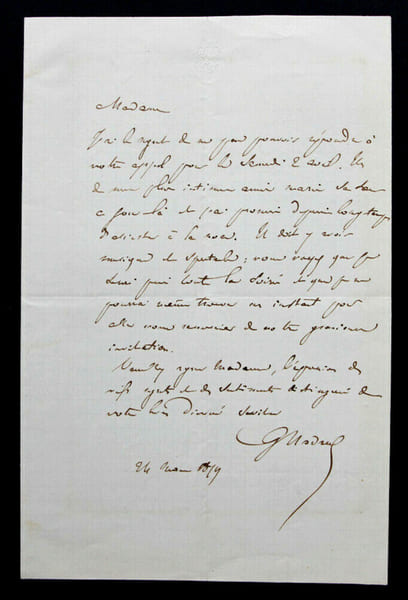 Madame
J'ai le regret de ne pas pouvoir répondre à
votre appel pour le Samedi 2 avril. Un
de mes plus intimes amis marie sa
ce jour là et j'ai promis depuis longtemps
d'assister à la noce. Il doit y avoir
musique et spectacle ; vous voyez que je
serai pris toute la soirée et que je ne
pourrai même trouver un instant pour
aller vous remercier de votre gracieuse
invitation.
Veuillez agréer Madame, l'expression des
vifs regrets et des sentiments distingués de
votre très dévoué serviteur
24 mars 1859